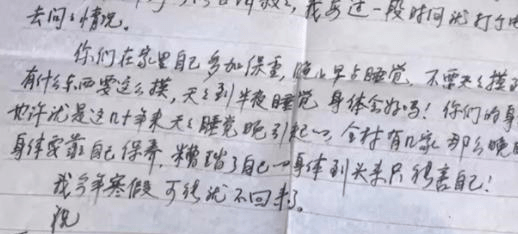 我要过一段时间就打个电
去问々情况。
你们在家里自己多加保重,晚上早点睡觉,不要天々摸
有什么东西要这么摸,天々到半夜睡觉 身体会好吗!你们的身
也许就是这几十年来天々睡觉晚引起的,全村有几家那么晚
身体要靠自己保养,糟蹋了自己的身体到头来只能害自己!
我今年寒假可能就不回来了。
祝